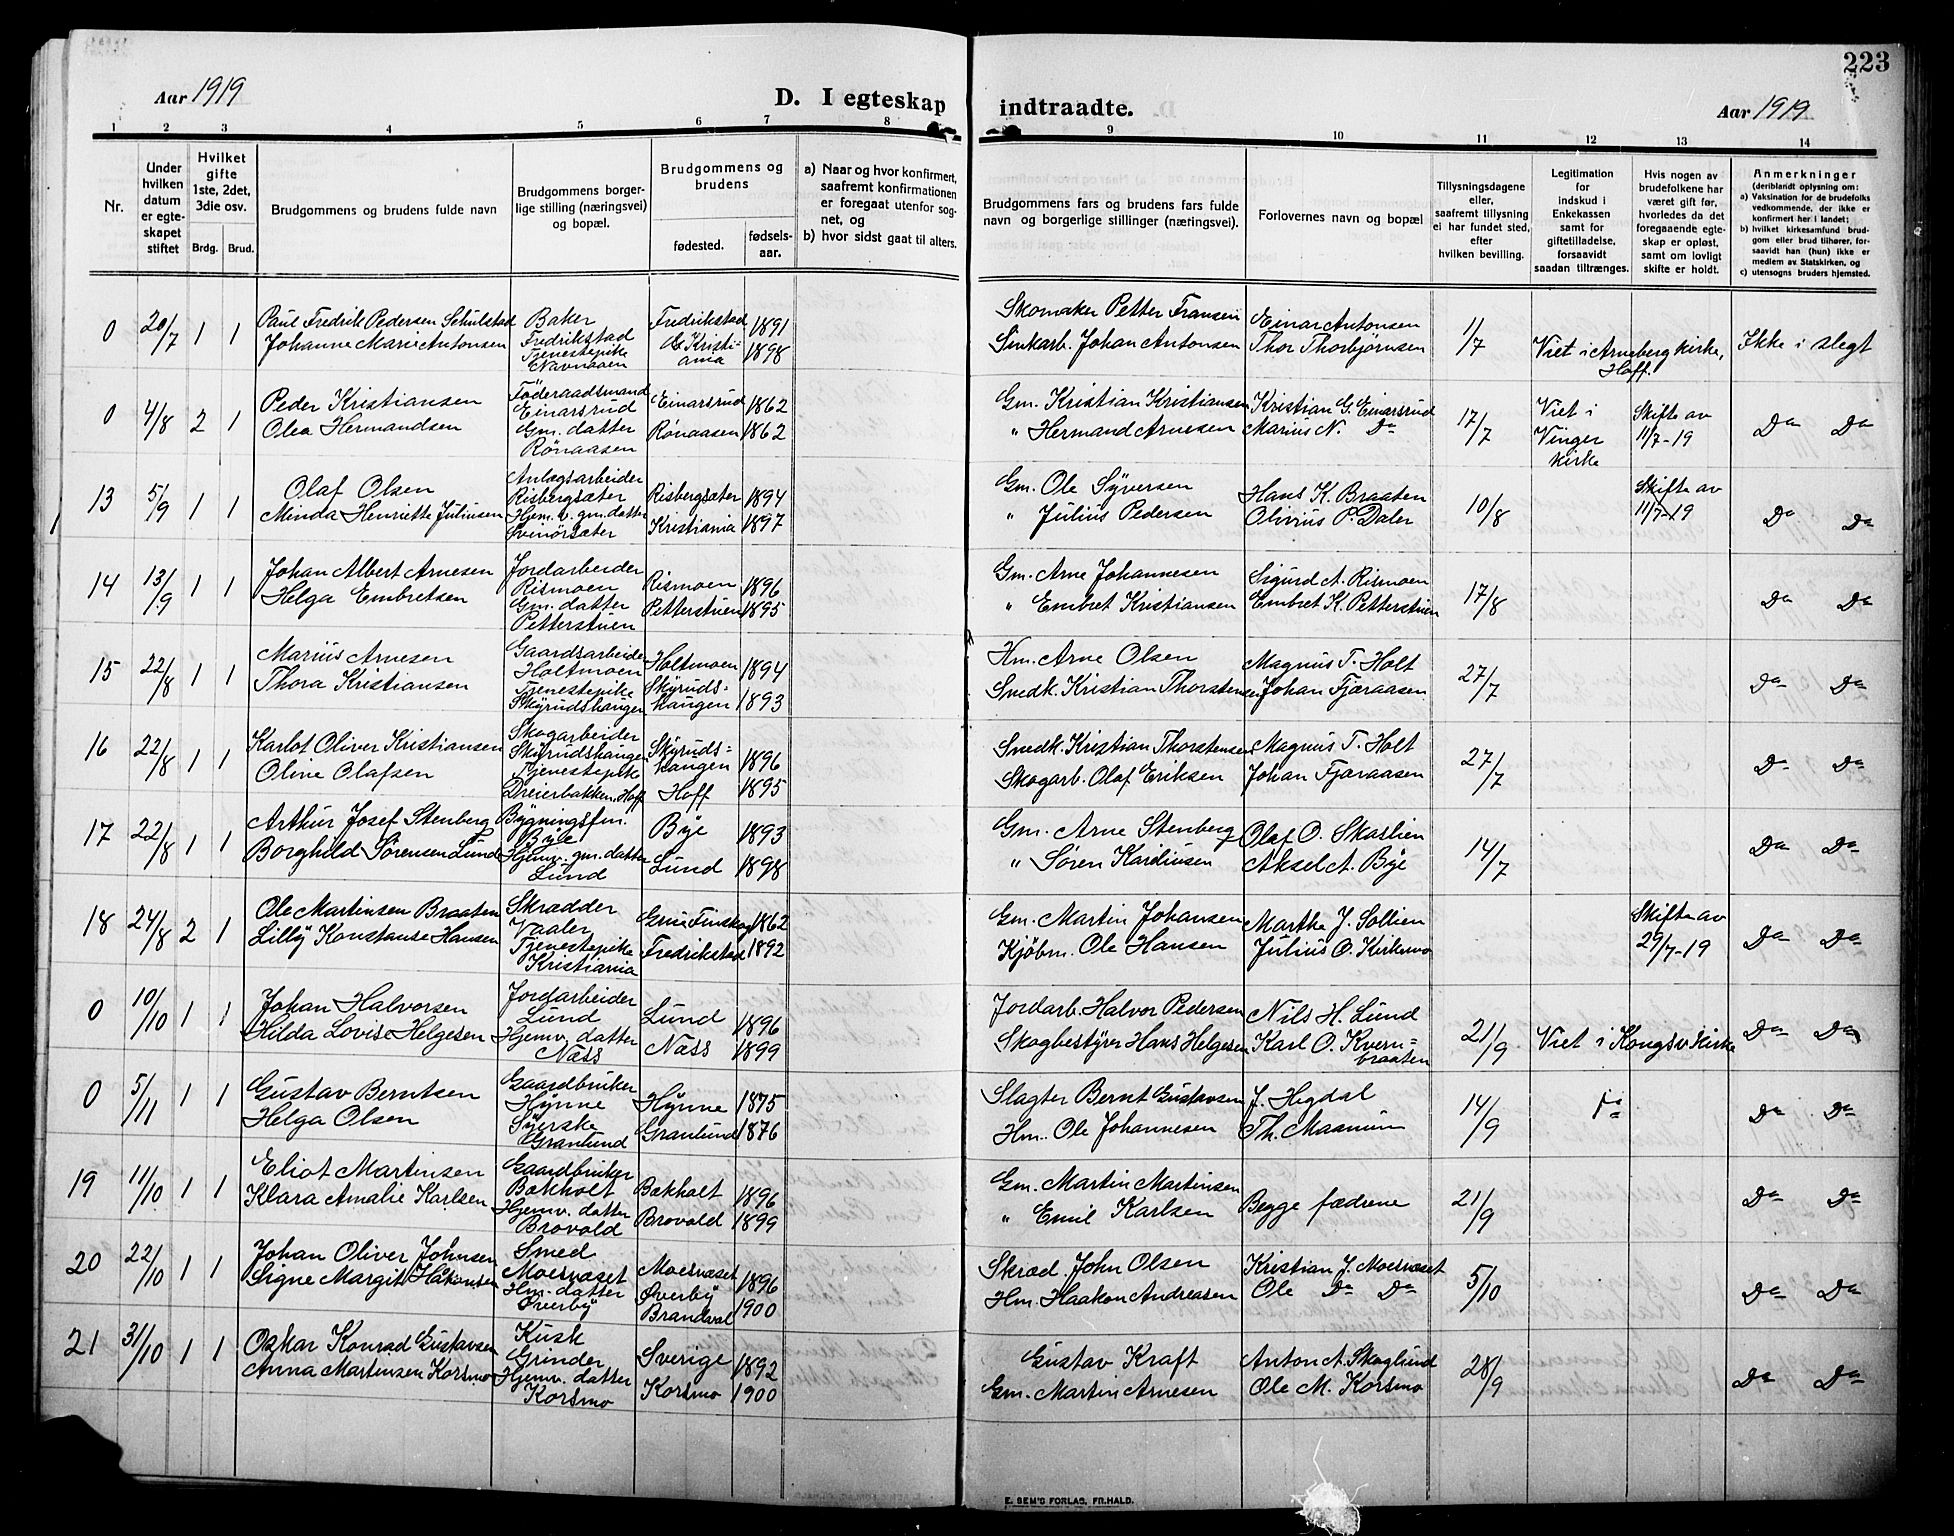 223
Aar 1919
D. I egteskap indtraadte.
Aar 1919
1 2 3 4 5 6 7 8 9 10 11 12 13 14
Nr.
Under hvilken datum er egteskapet stiftet
Hvilket gifte 1ste, 2det, 3die osv.
Brdg. Brud.
Brudgommens og brudens fulde navn
Brudgommens borgerlige stilling (næringsvei) og bopæl.
Brudgommens og brudens
fødested.
fødselsaar.
a) Naar og hvor konfirmert, saafremt konfirmationen er foregaat utenfor sognet, og
b) hvor sidst gaat til alters.
Brudgommens fars og brudens fars fulde navn og borgerlige stillinger (næringsvei).
Forlovernes navn og bopæl
Tillysningsdagene eller, saafremt tillysning ei har fundet sted, efter hvilken bevilling.
Legitimation for indskud i Enkekassen samt for giftetilladelse, forsaavidt saadan tiltrænges.
Hvis nogen av brudefolkene har været gift før, hvorledes da det foregaaende egteskap er opløst, samt om lovligt skifte er holdt.
Anmerkninger (deriblandt oplysning om:
a) Vaksination for de brudefolks vedkommende, der ikke er konfirmert her i landet;
b) hvilket kirkesamfund brudgom eller brud tilhører, forsaavidt han (hun) ikke er medlem av Statskirken, og
c) utensogns bruders hjemsted.
0 20/7 1 1 Paul Fredrik Pedersen Schulstad Baker Fredrikstad Fredrikstad 1891 Skomaker Petter Fransen Einar Antonsen 1/7 Viet i Arneberg kirke, Hoff. Ikke i slegt
Johanne Marie Antonsen Tjenestepike Navnaaen G. Kristiania 1898 Sinkarb. Johan Antonsen Thor Thorbjørnsen
0 4/8 2 1 Peder Kristiansen Föderaadsmand Einarsrud Einarsrud 1862 Gm. Kristian Kristiansen Kristian G. Einarsrud 17/7 Viet i Vinger kirke Skifte av 11/7-19 Do Do
Olea Hermandsen Gm. datter Rønaasen Rønaasen 1862 " Hermand Arnesen Marius N. Do
13 5/9 1 1 Olaf Olsen Anlægsarbeider Risbergsæter Risbergsæter 1894 Gm. Ole Syversen Hans K. Braaten 10/8 Skifte av 11/7-19 Do Do
Minda Henriette Juliusen Hjem. v. gm. datter Svenörsæter Kristiania 1897 " Julius Pedersen Olivius P. Daler
14 13/9 1 1 Johan Albert Arnesen Jordarbeider Rismoen Rismoen 1896 Gm. Arne Johannesen Sigurd A. Rismoen 17/8 Do Do
Helga Embretsen Gm. datter Petterstuen Petterstuen 1895 " Embret Kristiansen Embret K. Petterstuen
15 22/8 1 1 Marius Arnesen Gaardsarbeider Holtmoen Holtmoen 1894 Hm. Arne Olsen Magnus T. Holt 27/7 Do Do
Thora Kristiansen Tjenestepike Skyrudshaugen Skyrudshaugen 1893 Snedk. Kristian Thorstensen Johan Fjæraasen
16 22/8 1 1 Karlot Oliver Kristiansen Skogarbeider Skyrudshaugen Skyrudshaugen 1896 Snedk. Kristian Thorstensen Magnus T. Holt 27/7 Do Do
Oline Olafsen Tjenestepike Dreierbakken, Hoff Hoff 1895 Skogarb. Olaf Eriksen Johan Fjæraasen
17 22/8 1 1 Arthur Josef Stenberg Bygningsfm. Bye Bye 1893 Gm. Arne Stenberg Olaf O. Skarlien 14/7 Do Do
Borghild Sørensen Lund Hjemv. gm. datter Lund Lund 1898 " Søren Karelinsen Aksel A. Bye
18 24/8 2 1 Ole Martinsen Braaten Skrædder Vaaler Grue Finskog 1862 Gm. Martin Johansen Marthe J. Sollien Skifte av 29/7-19 Do Do
Lilly Konstanse Hansen Tjenestepike Kristiania Fredrikstad 1892 Kjøbm. Ole Hansen Julius O. Kirkemo
0 10/10 1 1 Johan Halvorsen Jordarbeider Lund Lund 1896 Jordarb. Halvor Pedersen Nils H. Lund 21/9 Viet i Kongsv. Kirke Do Do
Hilda Lovise Helgesen Hjemv. datter Næss Næss 1899 Skogbestyrer Hans Helgesen Karl O. Kvernbraaten
0 5/11 1 1 Gustav Berntsen Gaardbruker Hynne Hynne 1875 Slagter Bernt Gustavsen J. Hegdal 14/9 Do Do
Helga Olsen Syerske Granlund Granlund 1876 Hm. Ole Johannesen Th. Masnum
19 11/10 1 1 Eliot Martinsen Gaardbruker Bakholt Bakholt 1896 Gm. Martin Martinsen Begge fædrene 21/9 Do Do
Klara Amalie Karlsen Hjemv. datter Brovold Brovold 1899 " Emil Karlsen
20 22/10 1 1 Johan Oliver Johnsen Smed Moernæset Moernæset 1896 Skræd. John Olsen Kristian J. Moernæset 5/10 Do Do
Signe Margit Håkonsen Hm. datter Øverby Øverby Brandval 1900 Hm. Haakon Andreasen Ole Do Do
21 31/10 1 1 Oskar Konrad Gustavsen Kusk Grinder Sverige 1892 Gustav Kraft Anton A. Skoglund 28/9 Do Do
Anna Martinsen Korsmo Hjemv. datter Korsmo Korsmo 1900 Gm. Martin Arnesen Ole M. Korsmo
E. SEM'S FORLAG, FR.HALD.